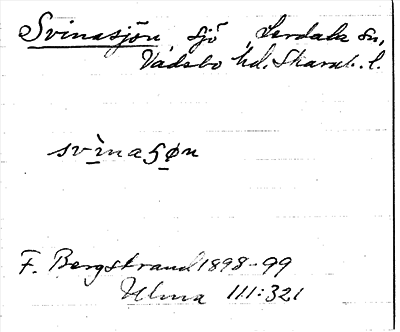 Svinasjön, sjö, Lerdala sn,
Vadsbo hd. Skarab. l.
svìnaSøn
F. Bergstrand 1898-99
Ulma 111:321